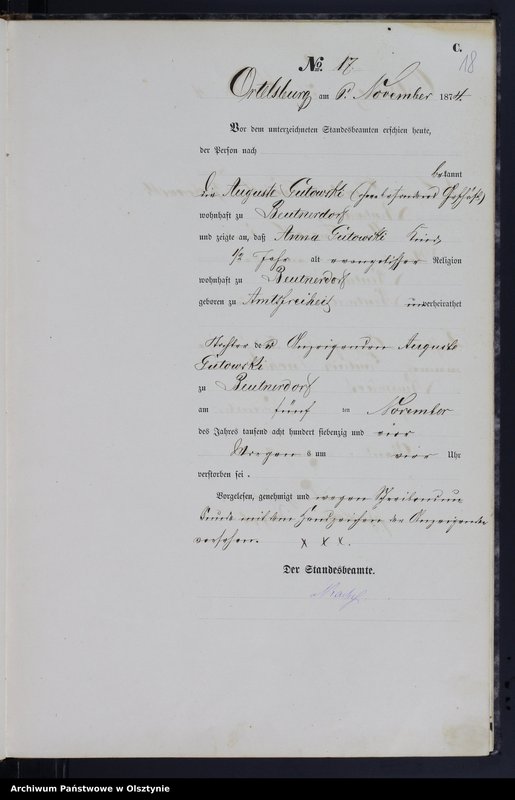 C.
18
No. 17.
Ortelsburg am 6. November 1874.
Vor dem unterzeichneten Standesbeamten erschien heute,
der Person nach
bekannt
die Auguste Gutowski
wohnhaft zu Beutnerdorf
und zeigte an, daß Anna Gutowski Kind,
1/2 Jahr alt evangelischer Religion
wohnhaft zu Beutnerdorf
geboren zu Amtsfreiheit unverheirathet
Tochter der Anzeigenden Auguste
Gutowski
zu Beutnerdorf
am fünf ten November
des Jahres tausend acht hundert siebenzig und vier
Morgens um vier Uhr
verstorben sei.
Vorgelesen, genehmigt und wegen Schreibensun
kunde mit dem Handzeichen der Anzeigenden
versehen. x x x.
Der Standesbeamte.
Archiwum Państwowe w Olsztynie